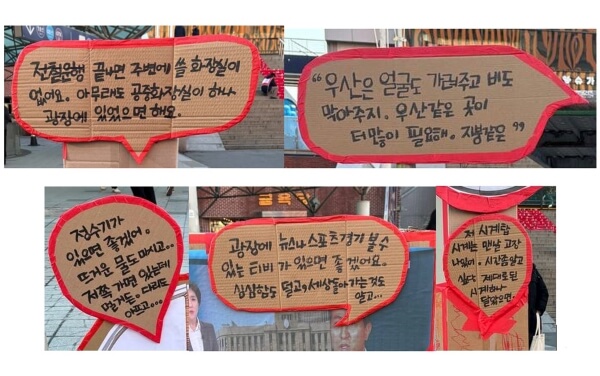 전철운행 끝나면 주변에 쓸 화장실이
없어요. 아무래도 공중화장실이 하나
광장에 있었으면 해요.
“우산은 얼굴도 가려주고 비도
막아주지. 우산같은 곳이
더많이 필요해. 지붕같은”
정수기가
있으면 좋겠어.
뜨거운 물도 마시고..
저쪽 가면 있는데
멀거든. 다리도
아프고...
광장에 뉴스나 스포츠경기 볼수
있는 티비가 있으면 좋겠어요.
심심함도 덜고, 세상돌아가는것도
알고...
저 시계탑
시계는 맨날 고장
나있어. 시간좀알고
싶다 제대로된
시계하나
달았으면.